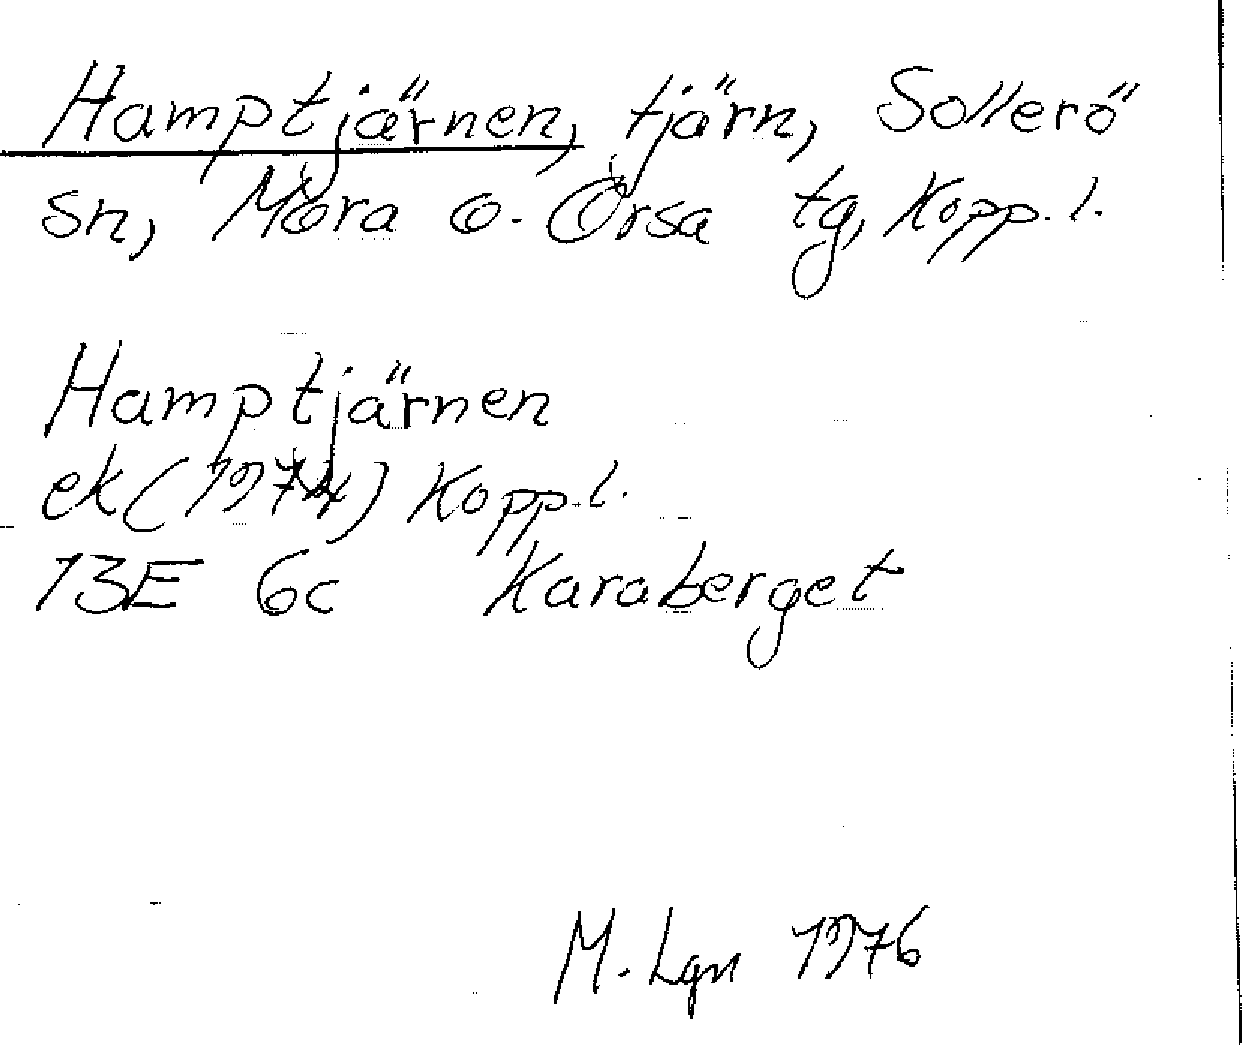 Hamptjärnen, tjärn, Sollerö
sn, Mora o. Orsa tg, Kopp. l.
Hamptjärnen
ek (1974) Kopp. l.
13E 6c Karaberget
M. Lgn 1976